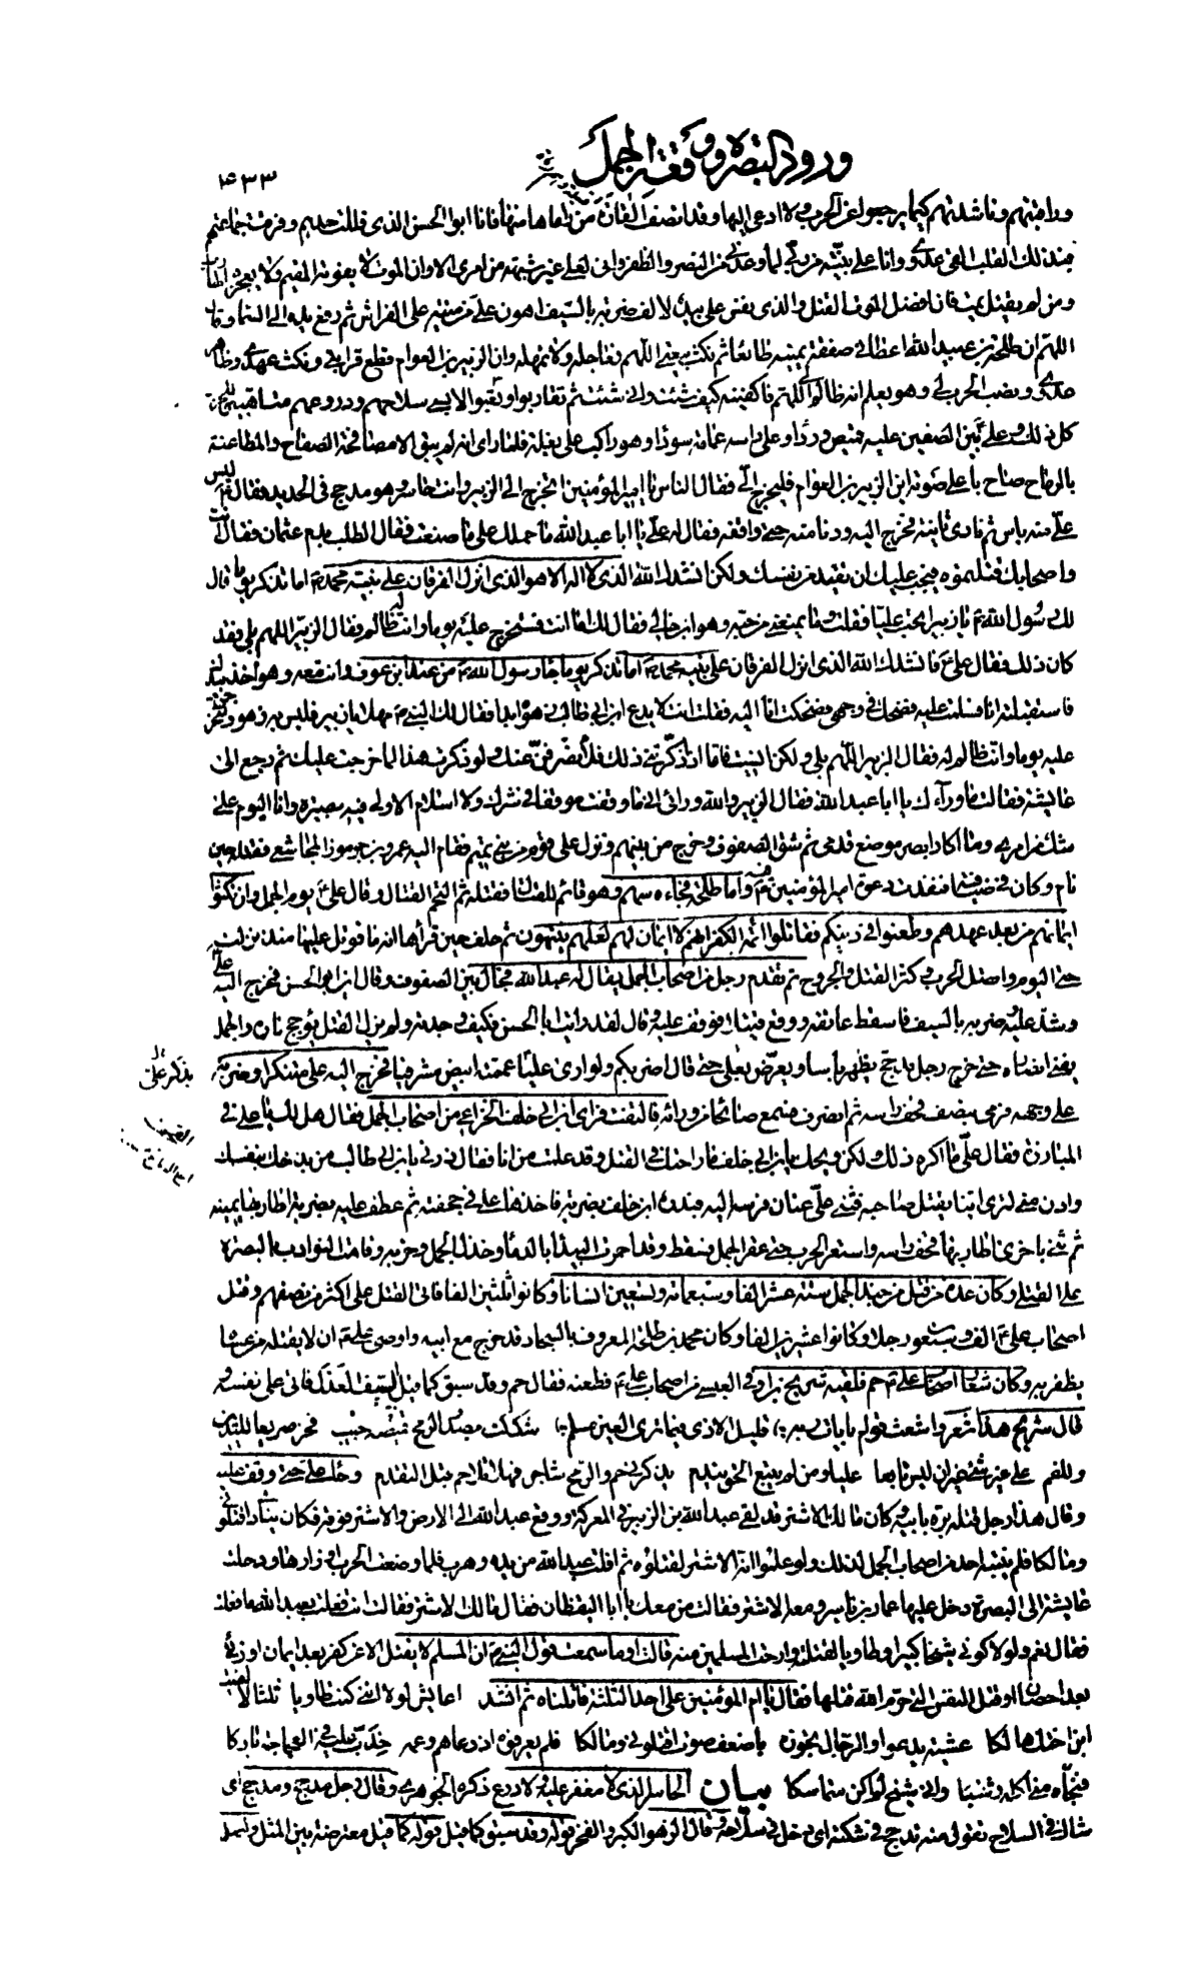 ورود البصرة ووقعة الجمل
۴۳۳
وراقبتهم وناشدتهم كيما يرجعوا عن الحرب ولا ادعى اليها وقد انصف القارة من راماها منها فانا ابو الحسن الذى فللت حدهم وفرقت جماعتهم
فبذلك القلب القى عدوى وانا على بينة من ربى لما وعدنى من النصر والظفر وانى لعلى غير شبهة من امرى الا وان الموت لا يفوته المقيم ولا يعجزه الهارب
ومن لم يقتل يمت فان افضل الموت القتل والذى نفس على بيده لالف ضربة بالسيف اهون على من ميتة على الفراش ثم رفع يده الى السماء وقال
اللهم ان طلحة بن عبيد الله اعطانى صفقة بيمينه طائعا ثم نكث بيعتى اللهم فعاجله ولا تمهله وان الزبير بن العوام قطع قرابتى ونكث عهدى وظاهر
عدوى ونصب الحرب لى وهو يعلم انه ظالم لى اللهم فاكفنيه كيف شئت وانى شئت ثم تقاربوا وتعبوا لابسى سلاحهم ودروعهم متأهبين للحرب
كل ذلك وعلى بين الصفين عليه قميص ورداء وعلى راسه عمامة سوداء وهو راكب على بغلة فلما راى انه لم يبق الا مصافحة الصفاح والمطاعنة
بالرماح صاح باعلى صوته اين الزبير بن العوام فليخرج الى فقال الناس يا امير المؤمنين اتخرج الى الزبير وانت حاسر وهو مدجج فى الحديد فقال ليس
على منه باس ثم نادى ثانية فخرج اليه ودنا منه حتى واقفه فقال له على يا ابا عبد الله ما حملك على ما صنعت فقال الطلب بدم عثمان فقال انت
واصحابك قتلتموه فيجب عليك ان تقيد من نفسك ولكن انشدك الله الذى لا اله الا هو الذى انزل الفرقان على نبيه محمد ص اما تذكر يوما قال
لك رسول الله ص يا زبير اتحب عليا فقلت وما يمنعنى من حبه وهو ابن خالى فقال لك اما انت فستخرج عليه يوما وانت له ظالم فقال الزبير اللهم بلى فقد
كان ذلك فقال على ع فانشدك الله الذى انزل الفرقان على نبيه محمد ص اما تذكر يوما جاء رسول الله ص من عند ابن عوف وانت معه وهو اخذ بيدك
فاستقبلته انا فسلمت عليه فضحك فى وجهى وضحكت انا اليه فقلت انت لا يدع ابن ابى طالب زهوه ابدا فقال لك النبى ص مهلا يا زبير فليس به زهو ولتخرجن
عليه يوما وانت ظالم له فقال الزبير اللهم بلى ولكن انسيت فاما اذ ذكرتنى ذلك فلانصرفن عنك ولو ذكرت هذا لما خرجت عليك ثم رجع الى
عايشة فقالت ما وراءك يا ابا عبد الله فقال الزبير والله ورائى انى ما وقفت موقفا فى شرك ولا اسلام الا ولى فيه بصيرة وانا اليوم على
شك من امرى وما اكاد ابصر موضع قدمى ثم شق الصفوف وخرج من بينهم ونزل على قوم من بنى تميم فقام اليه عمرو بن جرموز المجاشعى فقتله حين
نام وكان فى ضيافته فنفذت دعوة امير المؤمنين ع فيه واما طلحة فجاءه سهم وهو قائم للقتال فقتله ثم التحم القتال وقال على ع يوم الجمل وان نكثوا
ايمانهم من بعد عهدهم وطعنوا فى دينكم فقاتلوا ائمة الكفر انهم لا ايمان لهم لعلهم ينتهون ثم حلف حين قرأها انه ما قوتل عليها منذ نزلت
حتى اليوم واتصل الحرب وكثر القتل والجروح ثم تقدم رجل من اصحاب الجمل يقال له عبد الله فجال بين الصفوف وقال اين ابو الحسن فخرج اليه على
وشد عليه وضربه بالسيف فاسقط عاتقه ووقع قتيلا فوقف عليه وقال لقد رايت ابا الحسن فكيف وجدته ولم يزل القتل يؤجج ناره والجمل
يفنى انصاره حتى خرج رجل مدجج يظهر باسا ويعرض بعلى حتى قال اضربكم ولو ارى عليا عممته ابيض مشرفيا فخرج اليه على متنكرا وضربه
على وجهه فرمى بنصف قحف راسه ثم انصرف فسمع صائحا من ورائه فالتفت فراى ابن ابى خلف الخزاعى من اصحاب الجمل فقال هل لك يا على فى
المبارزة فقال على ما اكره ذلك ولكن ويحك يابن ابى خلف ما راحتك فى القتل وقد علمت من انا فقال ذرنى يابن ابى طالب من بذخك بنفسك
وادن منى لترى اينا يقتل صاحبه فثنى على عنان فرسه اليه فبدره ابن خلف بضربة فاخذها على فى جحفته ثم عطف عليه بضربة اطار بها يمينه
ثم ثنى باخرى اطار بها قحف راسه واستعر الحرب حتى عقر الجمل فسقط وقد احمرت البيداء بالدماء وخذل الجمل وحزبه وقامت النوادب بالبصرة
على القتلى وكان عدة من قتل من جند الجمل ستة عشر الفا وسبعمائة وتسعين انسانا وكانوا ثلثين الفا فاتى القتل على اكثر من نصفهم وقتل
اصحاب على ع الف وسبعون رجلا وكانوا عشرين الفا وكان محمد بن طلحة المعروف بالسجاد قد خرج مع ابيه واوصى على ع ان لا يقتله من عساه
يظفر به وكان شعار اصحاب على ع حم فلقيه شريح بن اوفى العبسى من اصحاب على ع فطعنه فقال حم وقد سبق كما قيل السيف العذل فاتى على نفسه و
قال شريح هذا شعر واشعث قوام بايات ربه قليل الاذى فيما ترى العين مسلم شككت بصدر الرمح جيب قميصه فخر صريعا لليدين
وللفم على غير شئ غير ان ليس تابعا عليا ومن لم يتبع الحق يندم يذكرنى حم والرمح شاجر فهلا تلا حم قبل التقدم وجاء على حتى وقف عليه
وقال هذا رجل قتله بره بابيه وكان مالك الاشتر قد لقى عبد الله بن الزبير فى المعركة ووقع عبد الله الى الارض والاشتر فوقه فكان ينادى اقتلونى
ومالكا فلم ينتبه احد من اصحاب الجمل لذلك ولو علموا انه الاشتر لقتلوه ثم افلت عبد الله من يده وهرب فلما وضعت الحرب اوزارها ودخلت
عايشة الى البصرة دخل عليها عمار بن ياسر ومعه الاشتر فقالت من معك يا ابا اليقظان فقال مالك الاشتر فقالت انت فعلت بعبد الله ما فعلت
فقال نعم ولولا كونى شيخا كبيرا وطاويا لقتلته وارحت المسلمين منه قالت اوما سمعت قول النبى ص ان المسلم لا يقتل الا عن كفر بعد ايمان او زنى
بعد احصان او قتل النفس التى حرم الله قتلها فقال يا ام المؤمنين على احد الثلثة قاتلناه ثم انشد اعايش لولا اننى كنت طاويا ثلثا لالفيت
ابن اختك هالكا عشية يدعو والرجال تحوزه باضعف صوت اقتلونى ومالكا فلم يعرفوه اذ دعاهم وعمه خدب عليه فى العجاجة باركا
فنجاه منى اكله وشبابه وانى شيخ لم اكن متماسكا بيان الحاسر الذى لا مغفر عليه ولا درع ذكره الجوهرى وقال رجل مدجج ومدجج اى
شاك فى السلاح تقول منه تدجج فى شكته اى دخل فى سلاحه وقال الزهو الكبر والفخر قوله وقد سبق كما قيل قوله كما قيل معترضة بين المثل واصله
يذكر على
القميص